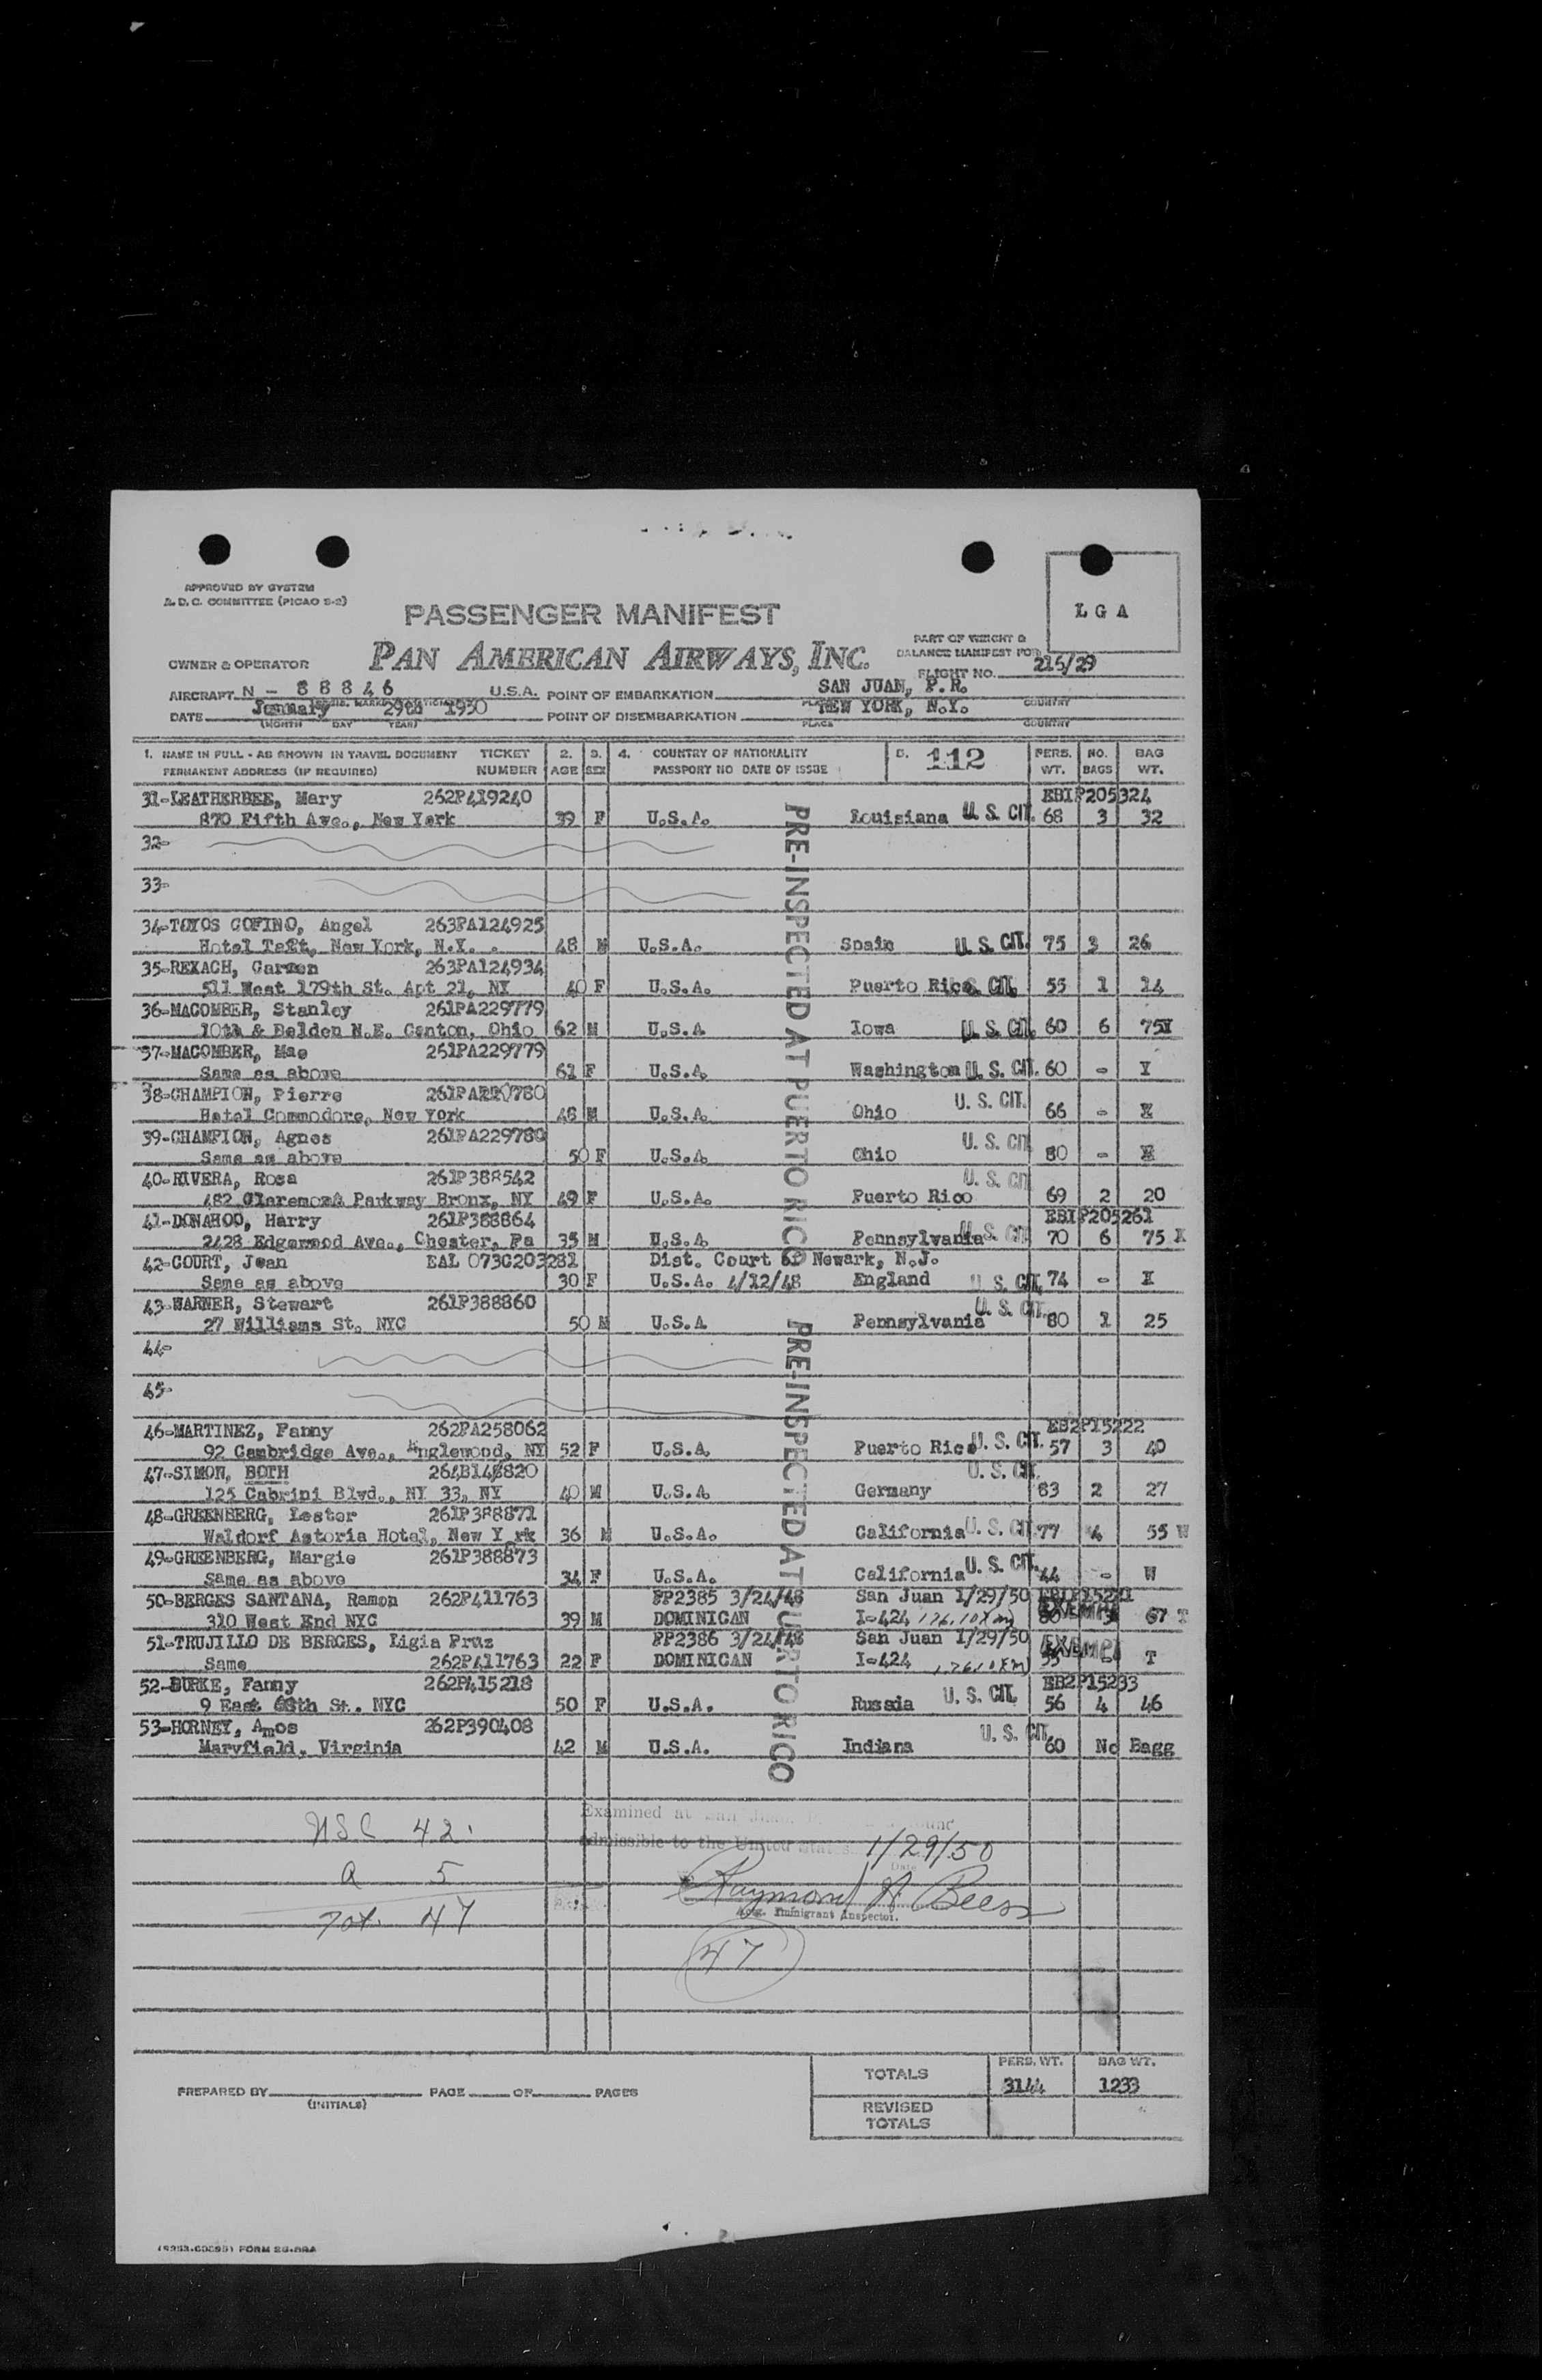 APPROVED BY SYSTEM
A.D.C. COMMITTEE (PICAO S-2)
LGA
PASSENGER MANIFEST
PAN AMERICAN AIRWAYS, INC.
PART OF WEIGHT &
BALANCE MANIFEST FOR
OWNER & OPERATOR
FLIGHT NO. 215/29
AIRCRAFT N - 88846 U.S.A. POINT OF EMBARKATION SAN JUAN, P.R.
PLACE COUNTRY
DATE January 29th 1950 POINT OF DISEMBARKATION NEW YORK, N.Y.
(MONTH DAY YEAR) PLACE COUNTRY
1. NAME IN FULL - AS SHOWN IN TRAVEL DOCUMENT TICKET 2. 3. 4. COUNTRY OF NATIONALITY 5. 112 PERS. NO. BAG
PERMANENT ADDRESS (IF REQUIRED) NUMBER AGE SEX PASSPORT NO DATE OF ISSUE WT. BAGS WT.
31-LEATHERBEE, Mary 262P419240 EBIP205324
870 Fifth Ave., New York 39 F U.S.A. Louisiana U. S. CIT. 68 3 32
32-
33-
34-TOYOS GOFINO, Angel 263PA124925
Hotel Taft, New York, N.Y. . 48 M U.S.A. Spain U. S. CIT. 75 3 26
35-REXACH, Carmen 263PA124934
511 West 179th St. Apt 21, NY 40 F U.S.A. Puerto Rico U. S. CIT. 55 1 14
36-MACOMBER, Stanley 261PA229779
10th & Belden N.E. Canton, Ohio 62 M U.S.A Iowa U. S. CIT. 60 6 75Y
37-MACOMBER, Mae 261PA229779
Same as above 61 F U.S.A. Washington U. S. CIT. 60 - Y
38-CHAMPION, Pierre
Hotel Commodore, New York 48 M U.S.A. Ohio U. S. CIT. 66 -
39-CHAMPION, Agnes 261PA229780
Same as above 50 F U.S.A. Ohio U. S. CIT 80 -
40-RIVERA, Rosa 261P388542
482 Claremont Parkway Bronx, NY 49 F U.S.A. Puerto Rico U. S. CIT 69 2 20
41-DONAHOO, Harry 261P388864 EBIP205261
2428 Edgewood Ave., Chester, Pa 35 M U.S.A. Pennsylvania U. S. CIT 70 6 75 X
42-COURT, Jean EAL 073G203281 Dist. Court of Newark, N.J.
Same as above 30 F U.S.A. 4/12/48 England U. S. CIT. 74 - X
43-WARNER, Stewart 261P388860
27 Williams St. NYC 50 M U.S.A Pennsylvania U. S. CIT. 80 1 25
44-
45-
46-MARTINEZ, Fanny 262PA258062 EB2P15222
92 Cambridge Ave., Englewood, NY 52 F U.S.A. Puerto Rico U. S. CIT. 57 3 40
47-SIMON, BOTH
125 Cabrini Blvd., NY 33, NY 40 M U.S.A. Germany U. S. CIT. 83 2 27
48-GREENBERG, Lester 261P388871
Waldorf Astoria Hotel, New York 36 M U.S.A. California U. S. CIT. 77 4 55 W
49-GREENBERG, Margie 261P388873
Same as above 34 F U.S.A. California U. S. CIT. 44 - W
50-BERGES SANTANA, Ramon 262P411763 PP2385 3/24/48 San Juan 1/29/50
310 West End NYC 39 M DOMINICAN I-424 EXEMPT 80 3 67 T
51-TRUJILLO DE BERGES, Ligia Pruz PP2386 3/24/48 San Juan 1/29/50 EXEMPT
Same 262P411763 22 F DOMINICAN I-424 55 - T
52-BURKE, Fanny 262P415218 EB2P15233
9 East 68th St. NYC 50 F U.S.A. Russia U. S. CIT. 56 4 46
53-HORNEY, Amos 262P390408
Maryfield, Virginia 42 M U.S.A. Indiana U. S. CIT. 60 No Bagg
PRE-INSPECTED AT PUERTO RICO
PRE-INSPECTED AT PUERTO RICO
Examined at San Juan
USC 42
Admissible to the United States 1/29/50
Date
a 5
Raymond
Tot. 47
Immigrant Inspector.
47
TOTALS PERS. WT. BAG WT.
3144 1233
PREPARED BY PAGE OF PAGES
(INITIALS)
REVISED
TOTALS